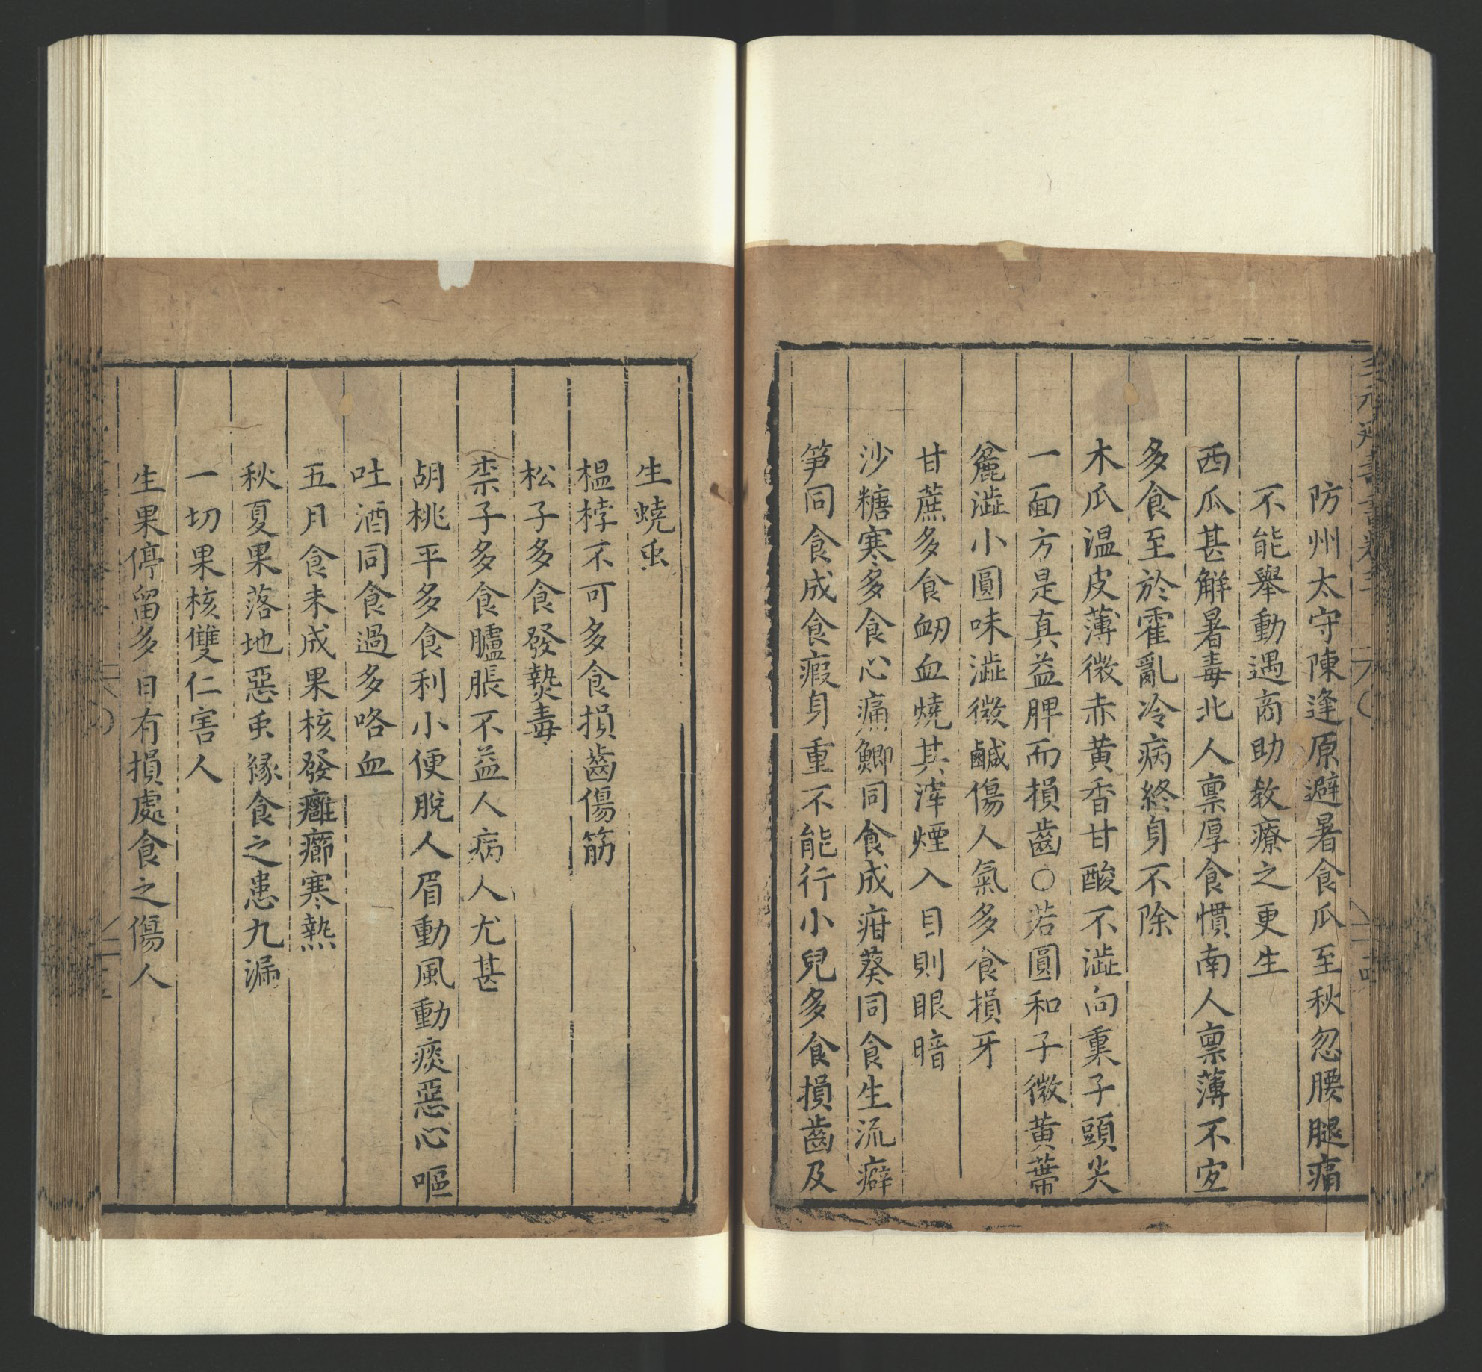 防州太守陳逢原避暑食瓜至秋忽腰腿痛
不能舉動遇商助教療之更生
西瓜甚解暑毒北人禀厚食慣南人禀薄不宜
多食至於霍亂冷病終身不除
木瓜温皮薄微赤黄香甘酸不澁向裏子頭尖
一面方是真益脾而損齒○若圓和子微黄蔕
麄澁小圓味澁微鹹傷人氣多食損牙
甘蔗多食衂血燒其滓煙入目則眼暗
沙糖寒多食心痛鯽同食成疳葵同食生流癖
笋同食成食瘕身重不能行小兒多食損齒及
生蟯虫
榲桲不可多食損齒傷筋
松子多食發熱毒
柰子多食臚脹不益人病人尤甚
胡桃平多食利小便脫人眉動風動痰惡心嘔
吐酒同食過多咯血
五月食未成果核發癰癤寒熱
秋夏果落地惡虫緣食之患九漏
一切果核雙仁害人
生果停留多日有損處食之傷人